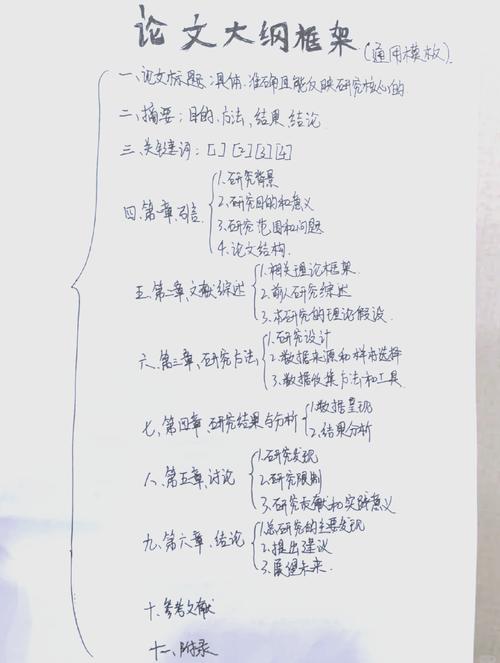 论文大纲框架(通用模板)
一、论文标题:具体、准确且能反映研究核心的
二、摘要:目的、方法、结果、结论
三、关键词:[1] [2] [3] [4]
四、第一章、引言
1.研究背景
2.研究目的和意义
3.研究范围和问题
4.论文结构
五、第二章、文献综述
1.相关理论框架
2.前人研究综述
3.本研究的理论假设
六、第三章、研究方法
1.研究设计
2.数据来源和样本选择
3.数据收集方法和工具
七、第四章、研究结果与分析
1.数据呈现
2.结果分析
八、第五章、讨论
1.研究发现
2.研究限制
3.研究贡献和实践意义
九、第六章、结论
1.总研究的主要发现
2.提出建议
3.展望未来
十、参考文献
十一、附录